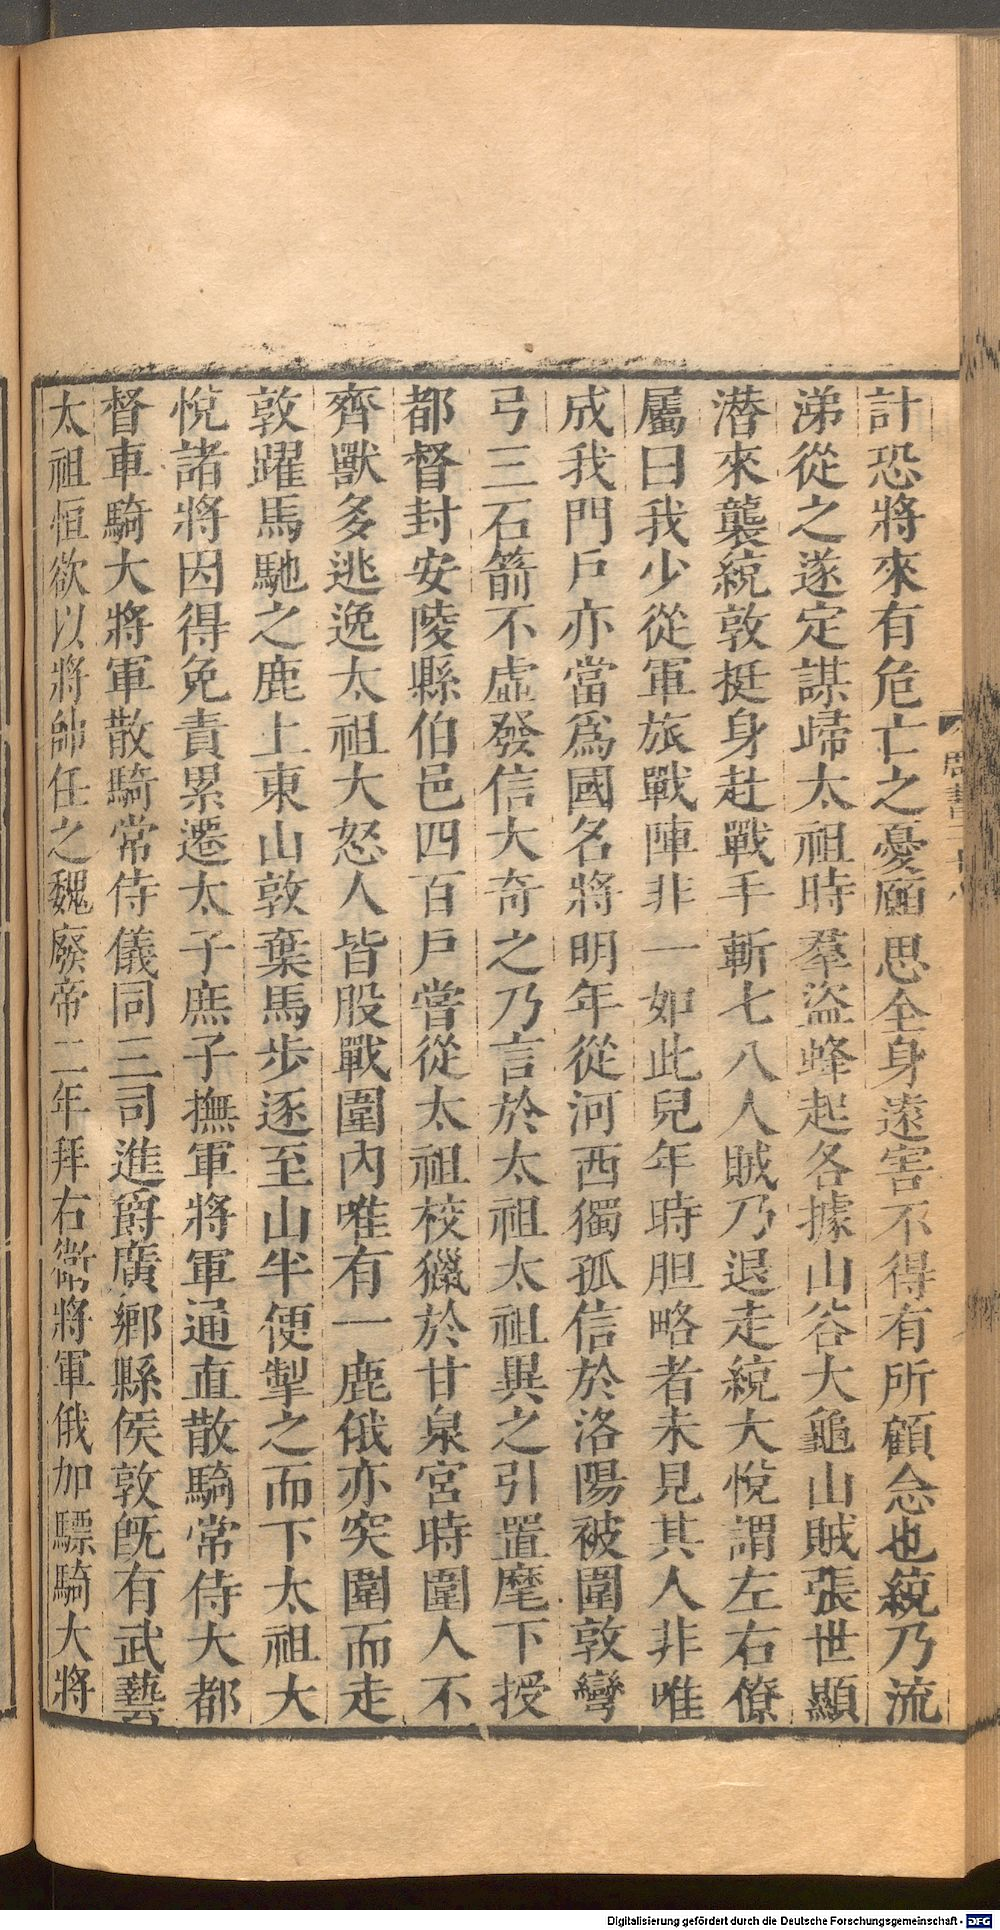 計恐將來有危亡之憂願思全身遠害不得有所顧念也統乃流
涕從之遂定謀歸太祖時羣盜蜂起各據山谷大龜山賊張世顯
潜來襲統敦挺身赴戰手斬七八人賊乃退走統大悅謂左右僚
屬曰我少從軍旅戰陣非一如此兒年時胆略者未見其人非唯
成我門戶亦當爲國名將明年從河西獨孤信於洛陽被圍敦彎
弓三石箭不虛發信大奇之乃言於太祖太祖異之引置麾下授
都督封安陵縣伯邑四百戶嘗從太祖校獵於甘泉宮時圍人不
齊獸多逃逸太祖大怒人皆股戰圍內唯有一鹿俄亦突圍而走
敦躍馬馳之鹿上東山敦葉馬步逐至山半便掣之而下太祖大
悅諸將因得免責累遷太子庶子撫軍將軍通直散騎常侍大都
督車騎大將軍散騎常侍儀同三司進爵廣鄉縣侯敦旣有武藝
太祖恒欲以將帥任之魏廢帝二年拜右衞將軍俄加驃騎大將
Digitalisierung gefördert durch die Deutsche Forschungsgemeinschaft - DFG